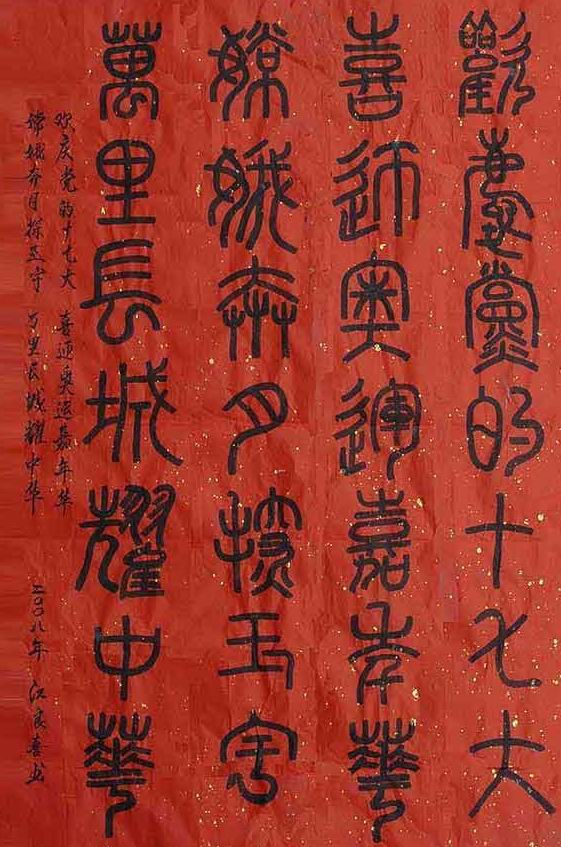 歡慶黨的十七大
喜迎奧運嘉年華
嫦娥奔月探玉宇
萬里長城耀中華
欢庆党的十七大 喜迎奥运嘉年华
嫦娥奔月探玉宇 万里长城耀中华 二〇〇八年 江良喜书